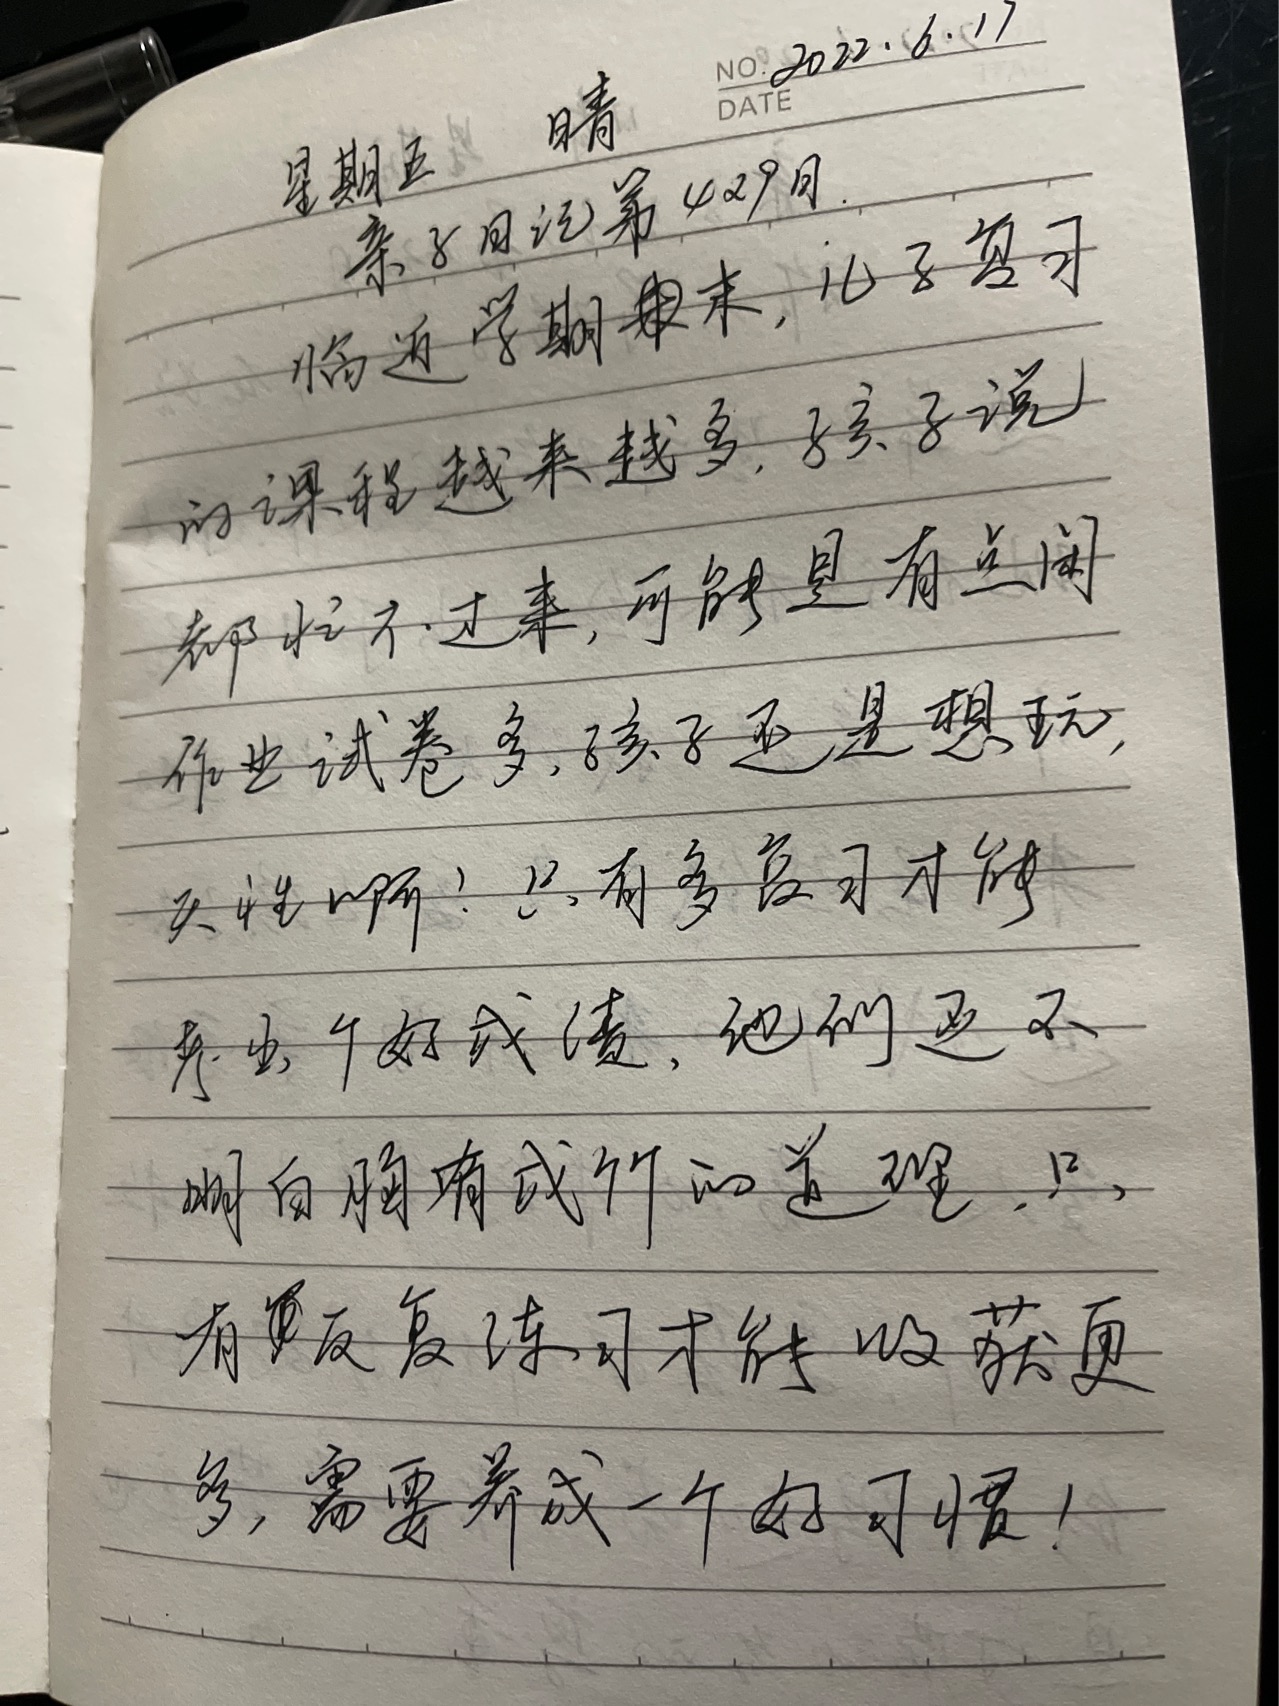 NO. 2022.6.17
DATE
星期五 晴
亲子日记第429日.
临近学期末,儿子复习
的课程越来越多,孩子说
都忙不过来,可能是有点闲
作业试卷多,孩子还是想玩,
天性啊!只有多复习才能
考出个好成绩,他们还不
明白胸有成竹的道理,只
有反复练习才能收获更
多,需要养成一个好习惯!